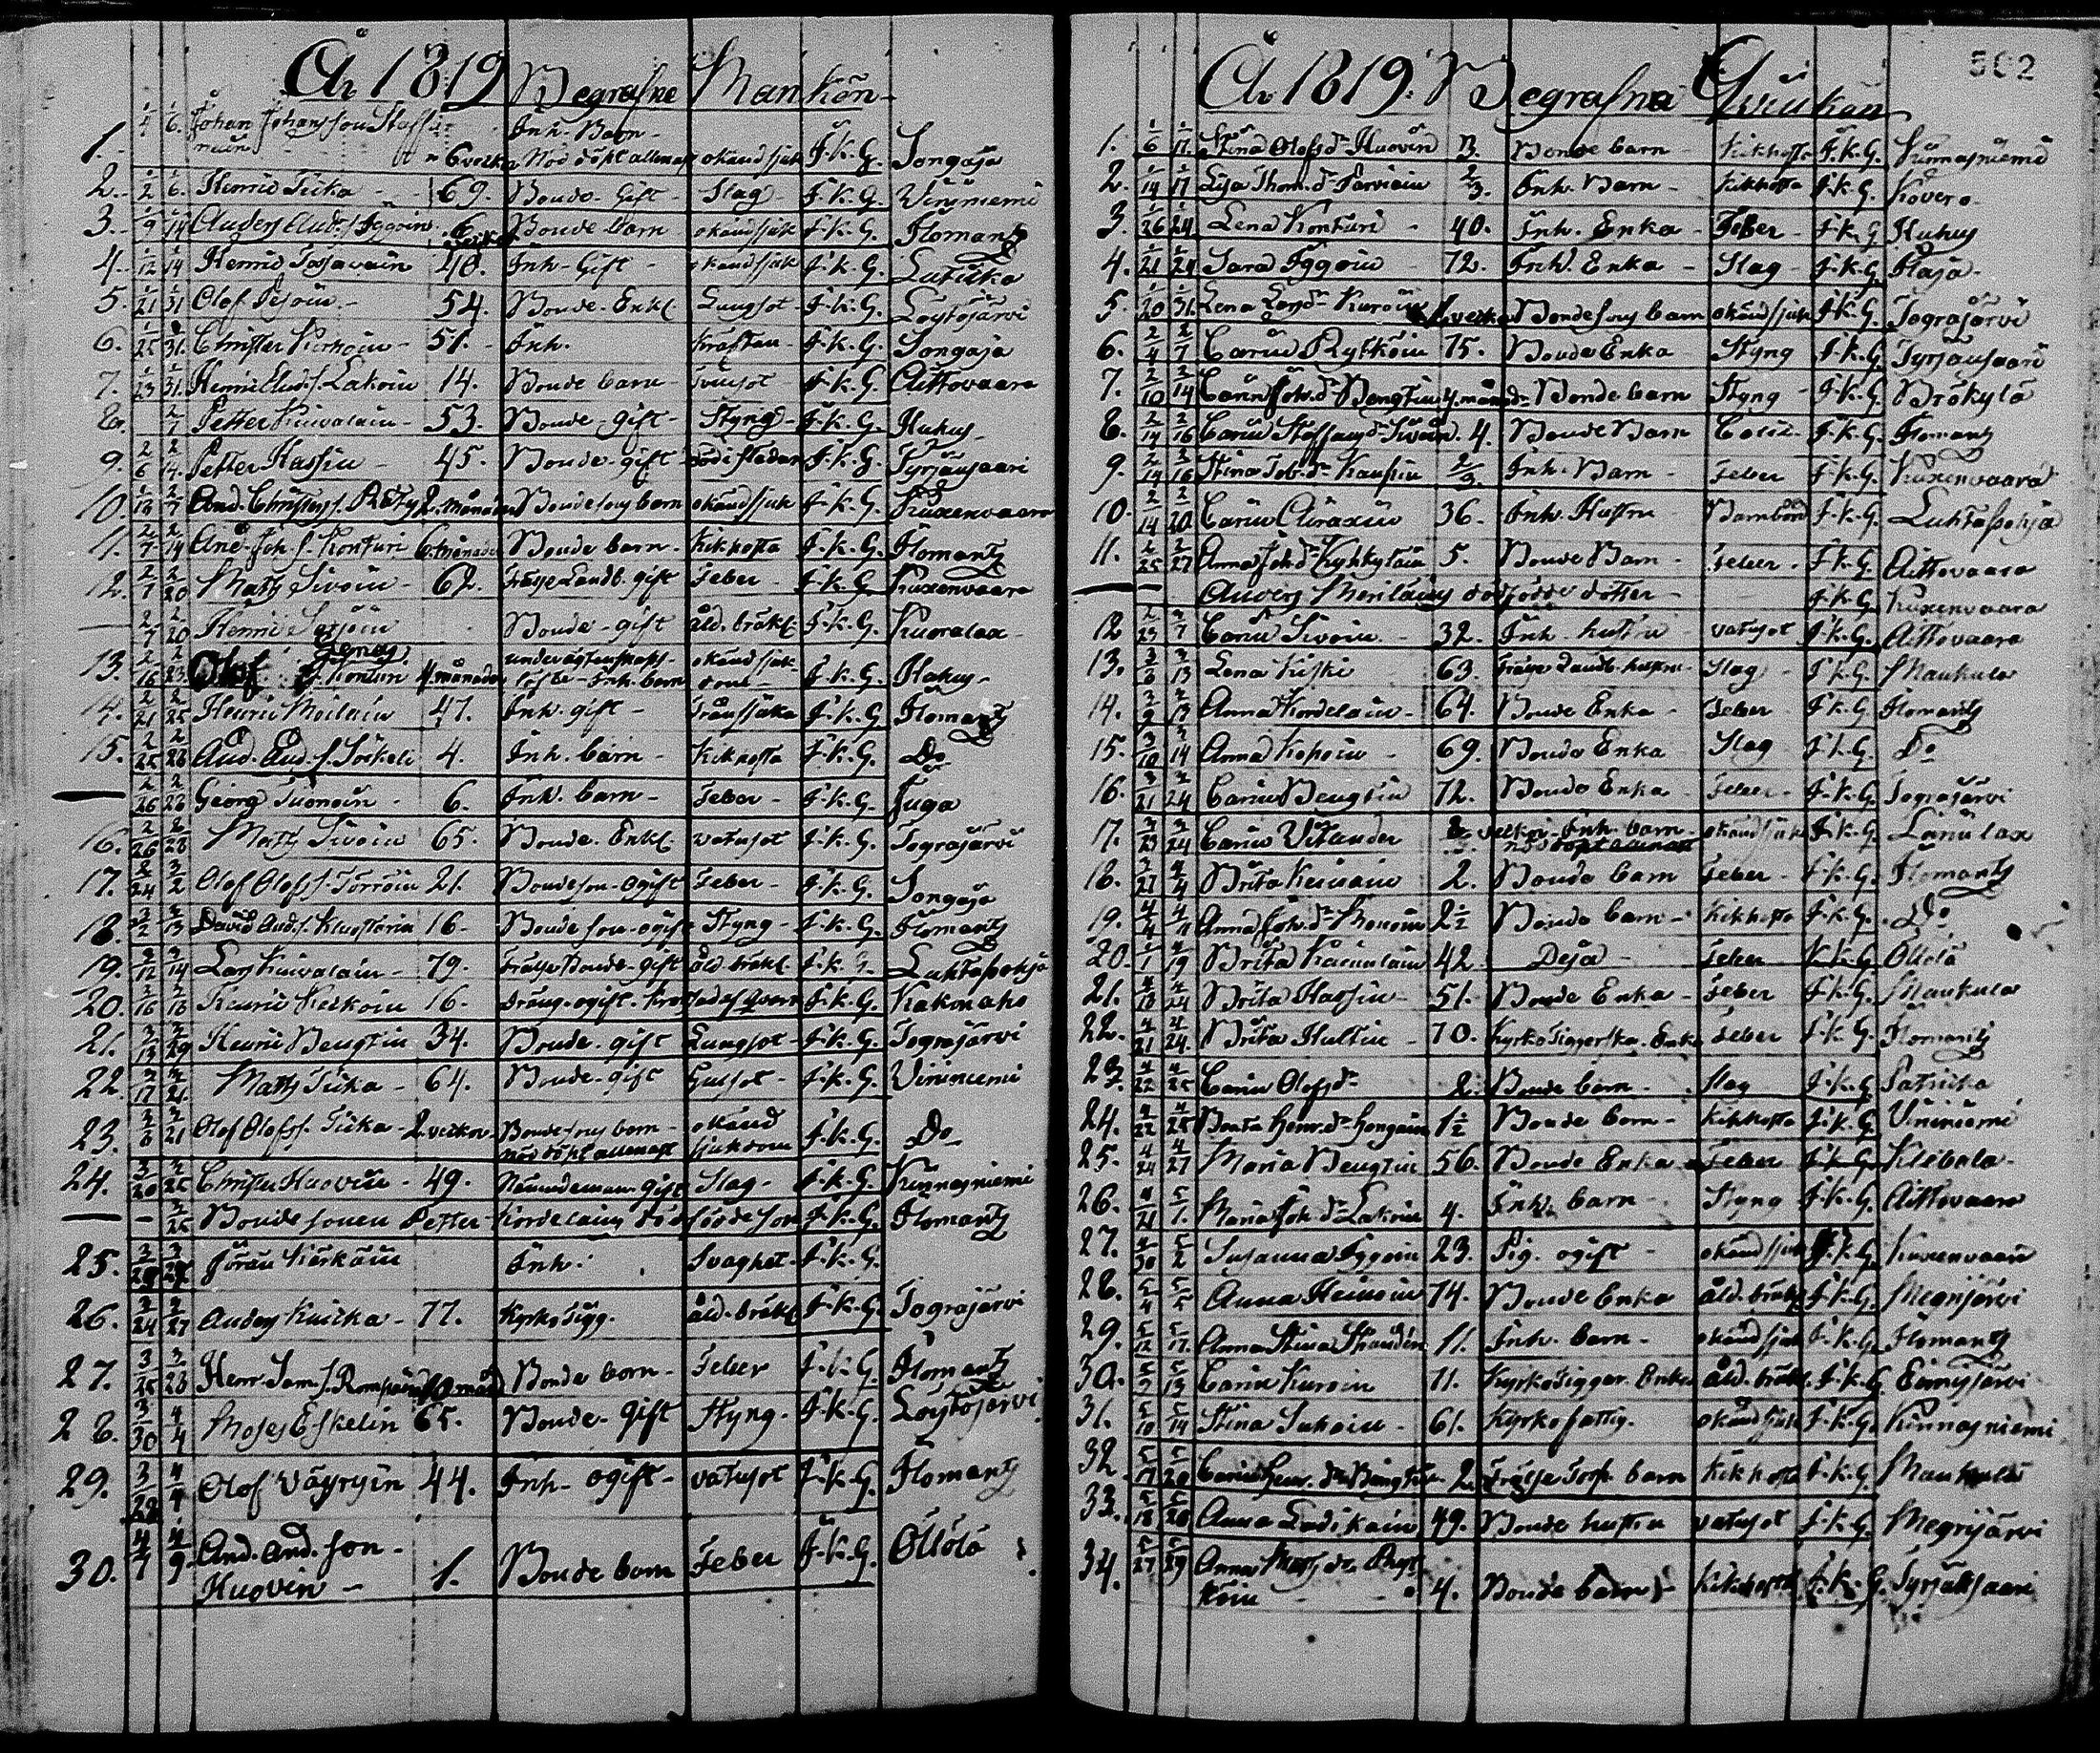 År 1819 Begrafne Mankön
1. 1/1 1/6. Johan Johansson Staffa- Inh. Barn-
näin 6 veckor Nöd döpt allenast okänd sjuk J.K.G. Songaja
2. 1/2 1/6. Henric Ticka - 69. Bonde- Gift - Slag - J.K.G. Vininiemi
3. 1/9 1/14 Anders And.s. Iggoin 6 veckor Bonde barn okänd sjuk J.K.G. Ilomantz
4. 1/12 1/14 Henric Tossavain 48. Inh- Gift - okänd sjuk J.K.G. Luticka
5. 1/21 1/31 Olof - 54. Bonde- Enkl. Lungsot - J.K.G. Löytöjärvi
6. 1/25 1/31. Christer - 51. - Inh. Kräftan - J.K.G. Songaja
7. 1/23 1/31. Henric And.s. Lakoin 14. Bonde barn - Tvinsot - J.K.G. Aittovaara
8. 2/7 Petter Kuivalain - 53. Bonde - gift - Styng - J.K.G. Huhus
9. 2/6 2/14. Petter Hassin - 45. Bonde - gift J.K.G. Tyrjänsaari
10. 1/18 2/7 And. Christers s. Räty 2. månader Bondesons barn okänd sjuk J.K.G. Kuxenvaara
11. 2/7 2/14 And. Joh. s. Konturi 6. månader Bonde barn - Kikhosta J.K.G. Ilomantz
12. 2/7 2/20 Matts Sivoin - 62. Frälse Landb. gift Feber - J.K.G. Kuxenvaara
— 2/7 2/20 Henric Bonde - gift åld. bräkl. J.K.G. Kuoralax
13. 2/16 2/23. Olof Konturi 4. månader under ägtenskaps- löfte - Inh. barn okänd sjuk- dom - J.K.G. Huhus -
14. 2/21 2/25 Henric Meilain 47. Inh. gift - J.K.G. Ilomantz
15. 2/25 2/28 And. And. s. Sorkeli 4. Inh. barn - Kikhosta J.K.G. Do
— 2/26 2/28 Georg Tuonoin - 6. Inh. barn - Feber - J.K.G. Juga
16. 2/26 2/28 Matts Sivoin 65. Bonde. Enkl. vatusot J.K.G. Tograjärvi
17. 2/24 3/2 Olof Olofs s. Törröin 21. Bondeson - ogift Feber - J.K.G. Songaja
18. 3/2 3/13 David And. s. 16. Bonde son - ogift Styng - J.K.G. Ilomantz
19. 3/12 3/14 Lars Kuivalain - 79. Frälse Bonde - gift Åld. bräkl. J.K.G. Luhtapohja
20. 3/16 3/18 Henric 16. Dräng - ogift - J.K.G. Kakonaho
21. 3/13 3/29 Henric Bengtin 34. Bonde - gift Lungsot - J.K.G. Tograjärvi
22. 3/17 3/21. Matts Ticka - 64. Bonde - gift Gulsot - J.K.G. Vininiemi
23. 3/8 3/21 Olof Olofs s. Ticka - 2 veckor Bondesons barn - okänd
nöd döpt allenast sjukdom J.K.G. Do
24. 3/20 3/25 Christer Huovin - 49. Nämndeman Gift Slag - J.K.G. Kinnasniemi
— - 3/25 Bonde sonen Petter Kordelains död födde son J.K.G. Ilomantz
25. Jöran Inh. Svaghet - J.K.G.
26. 3/24 3/27 Anders Kuicka - 77. Kyrkotigg. åld. bräkl. J.K.G. Tograjärvi
27. 3/25 3/28 Henr. Sam. s. Romppain Bonde barn - Feber J.K.G. Ilomantz
28. 3/30 4/4 Moses Eskelin 65. Bonde - Gift Styng - J.K.G. Löytöjärvi
29. 3/28 4/4 Olof Väyryin 44. Inh - ogift - vatusot J.K.G. Ilomantz
30. 4/7 4/9 And. And. son -
Huovin - 1. Bonde barn Feber J.K.G. Ollola
År 1819. Begrafna Qvinkön 502
1. 1/6 1/17. Stina Olofs dr Huovin 3. Bonde barn - Kikhosta J.K.G. Kinnasniemi
2. 1/14 1/17 Lisa Thom. dr Parviain 2/3. Inh. Barn - Kikhosta J.K.G. Kovero
3. 1/26 1/24 Lena Konturi - 40. Inh. Enka - Feber - J.K.G. Huhus
4. 1/21 1/24 Sara Iggoin - 72. Inh. Enka - Slag - J.K.G. Haja -
5. 1/20 1/31. Lena veckor Bondesons barn okänd sjuk J.K.G. Tograjärvi
6. 2/4 2/7 Carin Rytköin 75. Bonde Enka Styng J.K.G. Tyrjänsaari
7. 2/10 2/14 Carin Joh. dr Bengtin 4. månad - Bonde barn Styng - J.K.G. Bråkylä
8. 2/14 2/16 Carin Staffans dr Sivoin. 4. Bonde Barn Colic - J.K.G. Ilomantz
9. 2/14 2/16 Stina Tob. dr Inh. Barn - Feber J.K.G. Kuxenvaara
10. 2/14 2/20 Carin 36. Inh. Hustru Barnbörd J.K.G. Luhtapohja
11. 2/25 2/27 Anna Joh. dr 5. Bonde Barn - Feber - J.K.G. Aittovaara
— Anders Meriläins dödfödde dotter - J.K.G. Kuxenvaara
12 2/23 3/7 Carin Sivoin - 32. Inh. hustru - vatusot J.K.G. Aittovaara
13. 3/8 3/13 Lena Kiiski 63. Frälse Landb. hustru - Slag - J.K.G. Maukula
14. Anna Kordelain - 64. Bonde Enka - Feber - J.K.G. Ilomantz
15. 3/10 3/14 Anna - 69. Bonde Enka - Slag J.K.G. Do
16. 3/21 3/24 Carin Bengtin 72. Bonde Enka - Feber - J.K.G. Tograjärvi
17. 3/23 3/24 Carin Vitander 2 veckor - Inh. barn - okänd sjuk J.K.G.
nöd döpt allenast
18. 3/27 4/4 Brita 2. Bonde barn Feber - J.K.G. Ilomantz
19. Anna Joh. dr 2½ Bonde barn - Kikhosta J.K.G. Do
20. Brita 42 Deja - Feber J.K.G. Ollola
21. 4/18 4/24 Brita Hassin - 51. Bonde Enka - Feber J.K.G. Maukula
22. 4/21 4/24. Brita Hultin - 70. Kyrko Tiggerska. Enka Feber J.K.G. Ilomantz
23. 4/22 4/25 Carin Olofs dr 2. Bonde barn - Slag J.K.G. Patricka
24. 4/22 4/25 Henr. dr 1½ Bonde barn - Kikhosta J.K.G. Vininiemi
25. 4/24 4/27 Maria Bengtin 56. Bonde Enka Feber J.K.G.
26. 4/21 5/1. Maria Joh. dr Lakoin 4. Inh. barn - Styng J.K.G. Aittovaara
27. 4/30 5/2 Susanna Iggoin 23. Pig. ogift - okänd sjuk J.K.G. Kuxenvaara
28. 5/4 5/5 Anna Heinoin 74. Bonde Enka åld. bräkl. J.K.G. Megrijärvi
29. 5/12 5/12 Anna Stina 11. Inh. barn - okänd sjuk J.K.G. Ilomantz
30. 5/7 5/13 Carin Kuroin 71. Kyrkotigger. Enka Åld. bräkl. J.K.G. Eimisjärvi
31. 5/10 5/14 Stina - 61. Kyrkofattig. okänd sjuk J.K.G. Kinnasniemi
32 5/17 5/20 Carin Henr. dr Bengtin 2. Frälse Torp. barn Kikhosta J.K.G. Maukula
33. 5/18 5/20 Anna 49. Bonde hustru vatusot J.K.G. Megrijärvi
34. 5/27 5/29 Anna Matts dr Ryt-
köin - - 4. Bonde barn - Kikhosta J.K.G. Tyrjänsaari